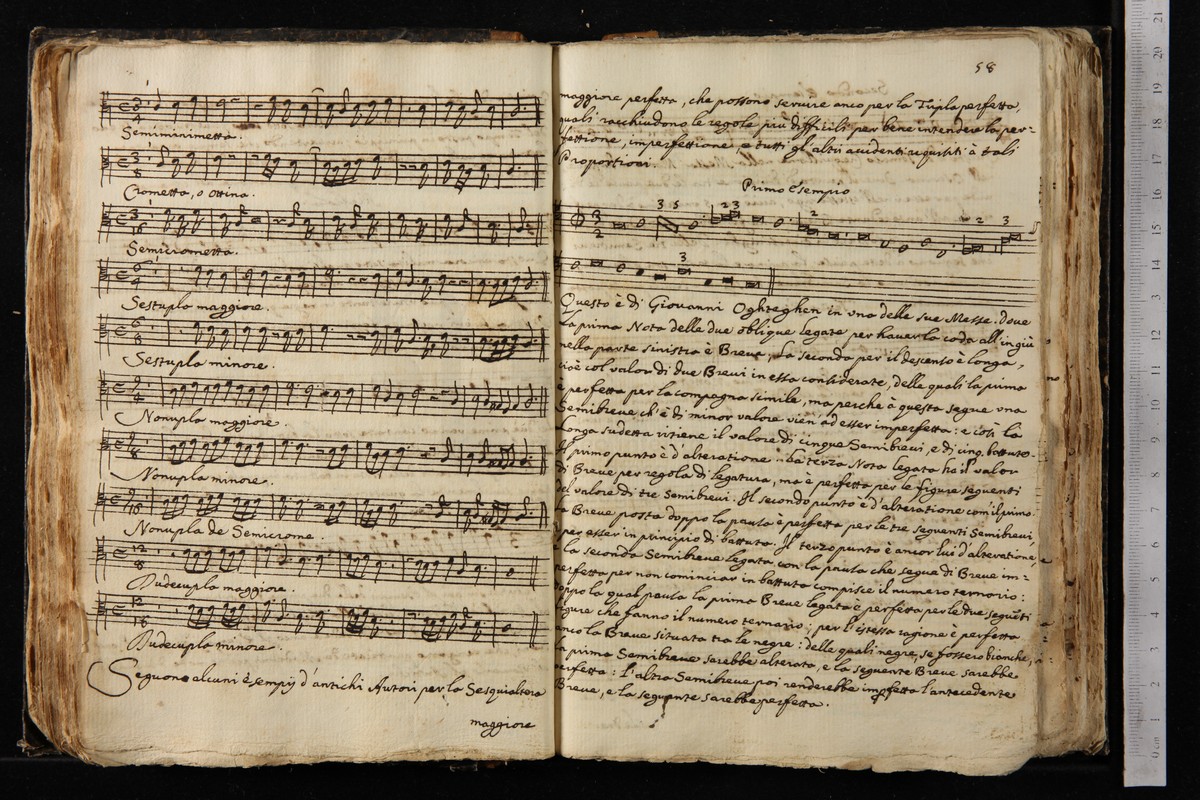 3 4
Semiminimetta.
3 8
Crometta, o ottina.
3 16
Semicrometta.
6 4
Sestupla maggiore.
6 8
Sestupla minore.
9 4
Nonupla maggiore.
9 8
Nonupla minore.
9 16
Nonupla de Semicrome.
12 8
Dudecupla maggiore.
12 16
Dudecupla minore.
Seguono alcuni èsempij d'antichi Autori per la Sesquialtera
maggiore
58
maggiore perfetta, che possono seruire anco per la Tripla perfetta,
quali racchiudono le regole più difficili per bene intendere la per-
fettione, imperfettione, e tutti gl'altri accidenti requisiti à tali
Proportioni.
Primo Esempio
3 2 3 5 2 3 2 2 3
3
Questo è di Giovanni Oghteghen in vna delle sue Messe. Doue
La prima Nota delle due oblique legate per hauer la coda all'ingiù
nella parte sinistra è Breue, La seconda per il descenso è longa,
cioè col valor di due Breui in essa considerate, delle quali la prima
è perfetta per la compagna simile, ma perche à questa segue vna
Semibreue ch'è di minor valore vien ad esser imperfetta: e così la
Longa sudetta ritiene il valore di cinque Semibreui, e di cinq. battute.
Il primo punto è d'alteratione. La terza Nota legata ha il valor
di Breue per regola di legatura, ma è perfetta per le figure seguenti
del valore di tre Semibreui. Il secondo punto è d'alteratione com'il primo.
La Breue posta doppo la pausa è perfetta per le tre seguenti Semibreui,
e per esser in principio di battuta. Il terzo punto è ancor lui d'alteratione,
e la seconda Semibreue legata con la pausa che segue di Breue im-
perfetta per non cominciar in battuta compisce il numero ternario:
doppo la qual pausa la prima Breue legata è perfetta per le due seguẽti
figure che fanno il numero ternario: per l'istessa ragione è perfetta
anco la Breue situata tra le negre: delle quali negre, se fossero bianche,
la prima Semibreue sarebbe alterata, e la seguente Breue sarebbe
perfetta: l'altra Semibreue poi renderebbe impfetta l'antecedente
Breue, e la seguente sarebbe perfetta.